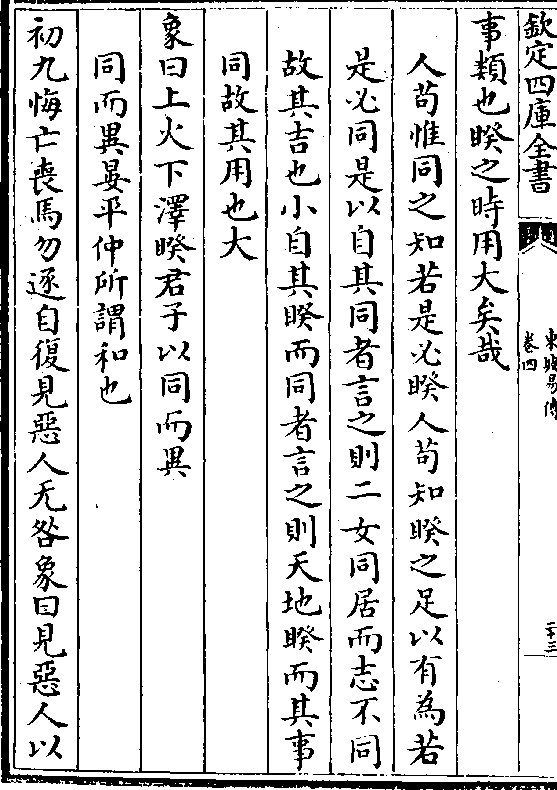 欽定四庫全書
東坡易傳
卷四
二十三
事類也睽之時用大矣哉
人苟惟同之知若是必睽人苟知睽之足以有為若
是必同是以自其同者言之則二女同居而志不同
故其吉也小自其睽而同者言之則天地睽而其事
同故其用也大
象曰上火下澤睽君子以同而異
同而異晏平仲所謂和也
初九悔亡喪馬勿逐自復見惡人无咎象曰見惡人以